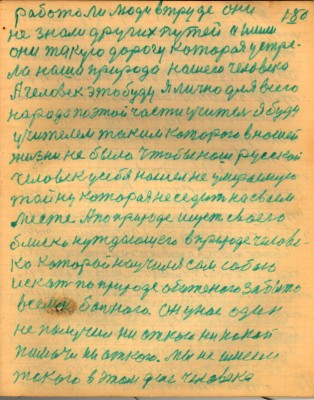 работали люди в труде они
180
не знали других путей а шли
они такую дорогу которая устре-
ла наша природа нашего человека
А человек это буду я лично для всего
народа по этой части учится я буду
учителем таким которого в нашей
жизни не было чтобы наш русской
человек у себя нашел не умираемую
тайну которая не седит на своем
месте А по природе ищет своего
близко нуждающего в природе челове-
ка которой научился сам собою
искат по природе обиженого забыто
всеми болного. он у нас один
не получил ни откого ни какой
помочи ни откого. мы не имеем
такого в этом деле человека